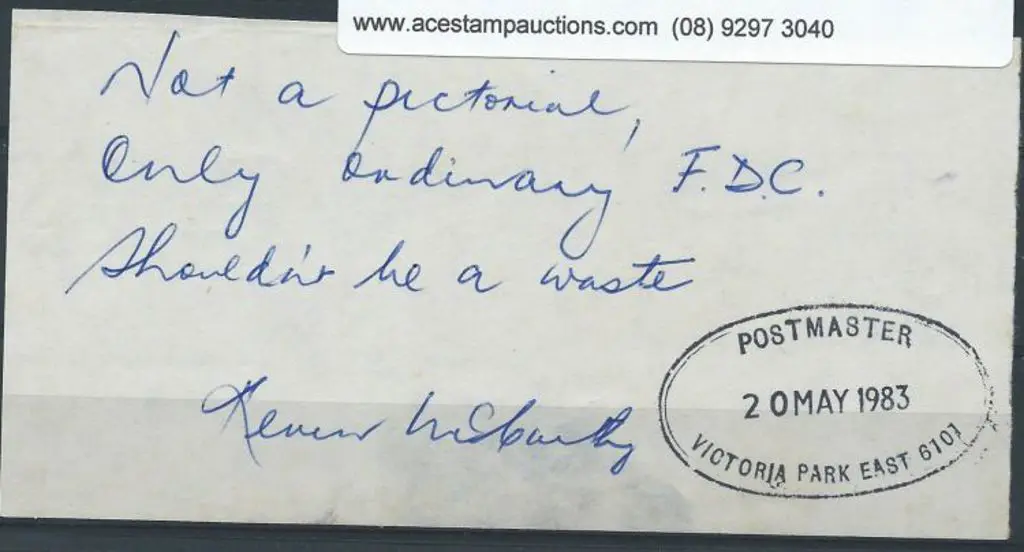 www.acestampauctions.com (08) 9297 3040
Not a pictorial,
Only ordinary F.D.C.
Shouldn't be a waste
Kevin McCarthy
POSTMASTER
20 MAY 1983
VICTORIA PARK EAST 6101